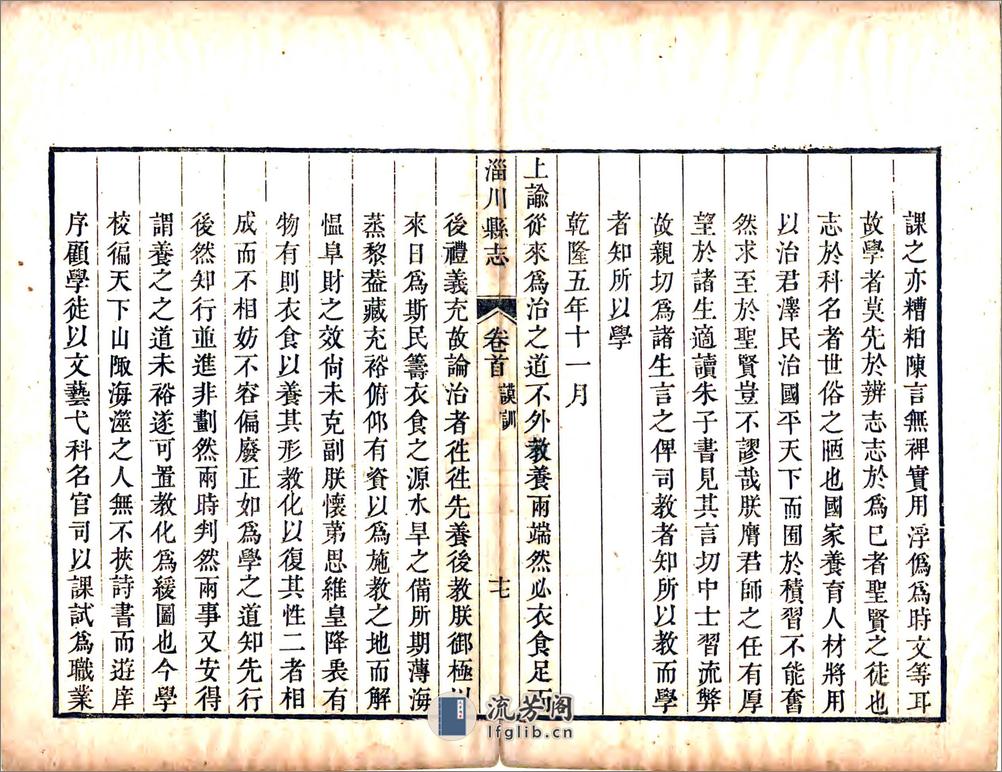 課之亦糟粕陳言無裨實用浮僞爲時文等耳
故學者莫先於辨志志於爲已者聖賢之徒也
志於科名者世俗之陋也國家養育人材將用
以治君澤民治國平天下而囿於積習不能奮
然求至於聖賢豈不謬哉朕膺君師之任有厚
望於諸生適讀朱子書見其言切中士習流弊
故親切爲諸生言之俾司教者知所以教而學
者知所以學
乾隆五年十一月
上諭從來爲治之道不外教養兩端然必衣食足而
淄川縣志
卷首
謨訓
十七
後禮義充故論治者徃徃先養後教朕御極以
來日爲斯民籌衣食之源水旱之備所期薄海
蒸黎葢藏充裕俯仰有資以爲施教之地而解
愠阜財之效尙未克副朕懷第思維皇降衷有
物有則衣食以養其形教化以復其性二者相
成而不相妨不容偏廢正如爲學之道知先行
後然知行並進非劃然兩時判然兩事又安得
謂養之之道未裕遂可置教化爲緩圖也今學
校徧天下山陬海澨之人無不挾詩書而遊庠
序顧學徒以文藝弋科名官司以課試爲職業
流芳閣
lfglib.cn